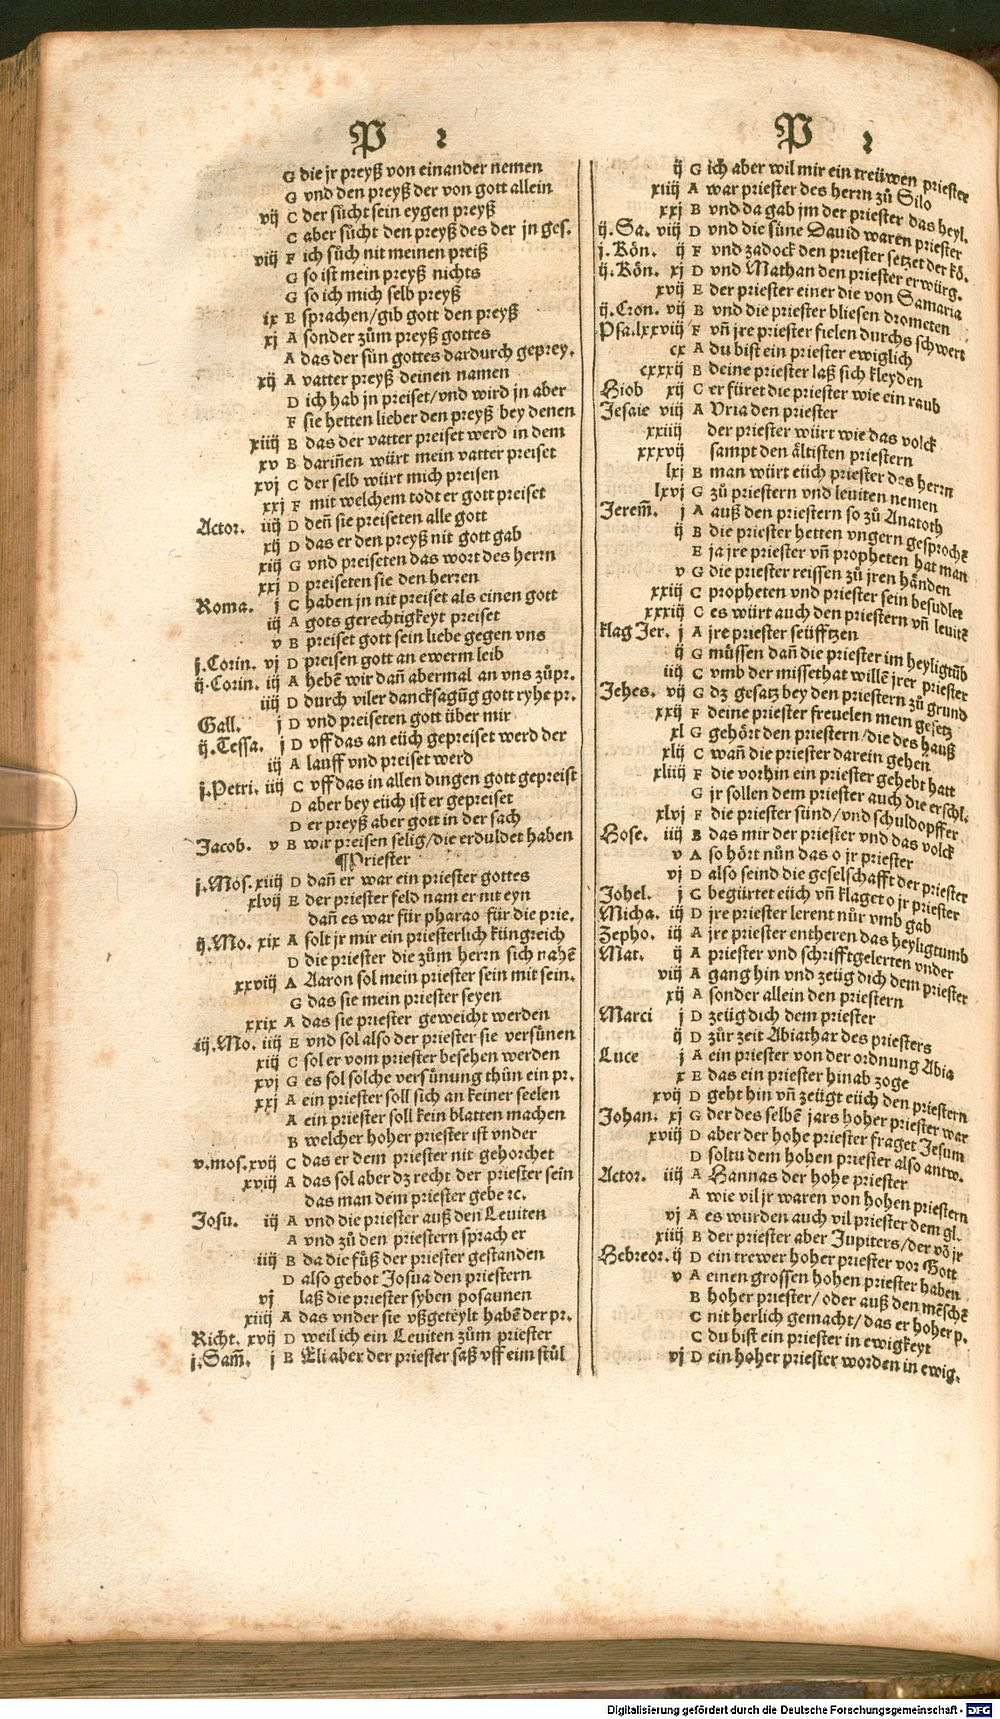 P
G die jr preyß von einander nemen
G vnd den preyß der von gott allein
vij C der sůcht sein eygen preyß
C aber sůcht den preyß des der jn ges.
viij F ich sůch nit meinen preiß
G so ist mein preyß nichts
G so ich mich selb preyß
ix E sprachen/gib gott den preyß
xj A sonder zům preyß gottes
A das der sün gottes dardurch geprey.
xij A vatter preyß deinen namen
D ich hab jn preiset/vnd wird jn aber
F sie hetten lieber den preyß bey denen
xiiij B das der vatter preiset werd in dem
xv B dariñen würt mein vatter preiset
xvj C der selb würt mich preisen
xxj F mit welchem todt er gott preiset
Actor. iiij D deñ sie preiseten alle gott
xij D das er den preyß nit gott gab
xiij G vnd preiseten das wort des herrn
xxj D preiseten sie den herren
Roma. j C haben jn nit preiset als einen gott
iij A gots gerechtigkeyt preiset
v B preiset gott sein liebe gegen vns
j.Corin. vj D preisen gott an ewerm leib
ij.Corin. iij A hebẽ wir dañ abermal an vns zůpr.
iiij D durch viler dancksagũg gott ryhe pr.
Gall. j D vnd preiseten gott über mir
ij.Tessa. j D vff das an eüch gepreiset werd der
iij A lauff vnd preiset werd
j.Petri. iiij C vff das in allen dingen gott gepreist
D aber bey eüch ist er gepreiset
D er preyß aber gott in der sach
Jacob. v B wir preisen selig/die erduldet haben
¶Priester
j.Mos. xiiij D dañ er war ein priester gottes
xlvij E der priester feld nam er nit eyn
dañ es war für pharao für die prie.
ij.Mo. xix A solt jr mir ein priesterlich künigreich
D die priester die zům herrn sich nahẽ
xxviij A Aaron sol mein priester sein mit sein.
G das sie mein priester seyen
xxix A das sie priester geweicht werden
iij.Mo. iiij E vnd sol also der priester sie versünen
xiij C sol er vom priester besehen werden
xvj G es sol solche versünung thůn ein pr.
xxj A ein priester soll sich an keiner seelen
A ein priester soll kein blatten machen
B welcher hoher priester ist vnder
v.mos. xvij C das er dem priester nit gehorchet
xviij A das sol aber dz recht der priester sein
das man dem priester gebe ꝛc.
Josu. iij A vnd die priester auß den Leuiten
A vnd zů den priestern sprach er
iiij B da die füß der priester gestanden
D also gebot Josua den priestern
vj laß die priester syben posaunen
xiiij A das vnder sie vßgeteylt habẽ der pr.
Richt. xvij D weil ich ein Leuiten zům priester
j.Sam̃. j B Eli aber der priester saß vff eim stůl
P
ij G ich aber wil mir ein treüwen priester
xiiij A war priester des herrn zů Silo
xxj B vnd da gab jm der priester das heyl.
ij.Sa. viij D vnd die süne Dauid waren priester
j.Kön. ij F vnd zadock den priester setzet der kö.
ij.Kön. xj D vnd Mathan den priester erwürg.
xvij E der priester einer die von Samaria
ij.Cron. vij B vnd die priester bliesen drometen
Psa.lxxviij F vñ jre priester fielen durchs schwert
cx A du bist ein priester ewiglich
cxxxij B deine priester laß sich kleyden
Hiob xij C er füret die priester wie ein raub
Jesaie viij A Vria den priester
xxiiij der priester würt wie das volck
xxxvij sampt den ältisten priestern
lxj B man würt eüch priester des herrn
lxvj G zů priestern vnd leuiten nemen
Jerem̃. j A auß den priestern so zů Anatoth
ij B die priester hetten vngern gesprochẽ
E ja jre priester vñ propheten hat man
v G die priester reissen zů jren händen
xxiij C propheten vnd priester sein besudlet
xxxiij C es würt auch den priestern vñ leuitẽ
klag Jer. j A jre priester seüfftzen
ij G můssen dañ die priester im heyligtũb
iiij C vmb der missethat willẽ jrer priester
Jehes. vij G dz gesatz bey den priestern zů grund
xxij F deine priester freuelen mein gesetz
xl G gehört den priestern/die des hauß
xlij C wañ die priester darein gehen
xliiij F die vorhin ein priester gehebt hatt
G jr sollen dem priester auch die erschl.
xlvj F die priester sünd/vnd schuldopffer
Hose. iiij B das mir der priester vnd das volck
v A so hört nůn das o jr priester
vj D also seind die geselschafft der priester
Johel. j C begürtet eüch vñ klaget o jr priester
Micha. iij D jre priester lerent nůr vmb gab
Zepho. iij A jre priester entheren das heyligtumb
Mat. ij A priester vnd schrifftgelerten vnder
viij A gang hin vnd zeüg dich dem priester
xij A sonder allein den priestern
Marci j D zeüg dich dem priester
ij D zůr zeit Abiathar des priesters
Luce j A ein priester von der ordnung Abia
x E das ein priester hinab zoge
xvij D geht hin vñ zeügt eüch den priestern
Johan. xj G der des selbẽ jars hoher priester war
xviij D aber der hohe priester fraget Jesum
D soltu dem hohen priester also antw.
Actor. iiij A Hannas der hohe priester
A wie vil jr waren von hohen priestern
vj A es wurden auch vil priester dem gl.
xiiij B der priester aber Jupiters/der võ jr
Hebreor. ij D ein trewer hoher priester vor Gott
v A einen grossen hohen priester haben
B hoher priester/oder auß den mẽschẽ
C nit herlich gemacht/das er hoher p.
C du bist ein priester in ewigkeyt
vj D ein hoher priester worden in ewig.
Digitalisierung gefördert durch die Deutsche Forschungsgemeinschaft - DFG